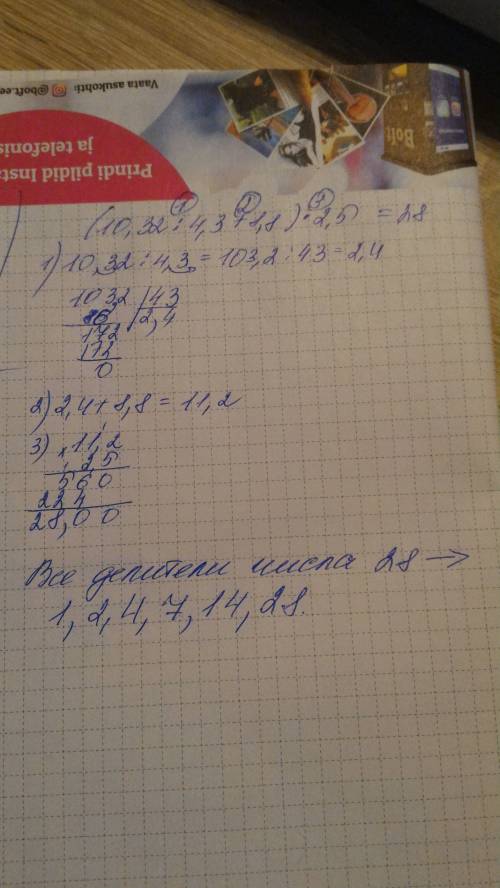 Vaata asukohti:
@bolt.ee
Prindi pildid Insta
ja telefonis
Bolt
(10,32 : 4,3 + 8,8) · 2,5 = 28
1) 10,32 : 4,3 = 103,2 : 43 = 2,4
103,2 | 43
86 | 2,4
172
172
0
2) 2,4 + 8,8 = 11,2
3) × 11,2
2,5
560
224
28,00
Все делители числа 28 →
1, 2, 4, 7, 14, 28.